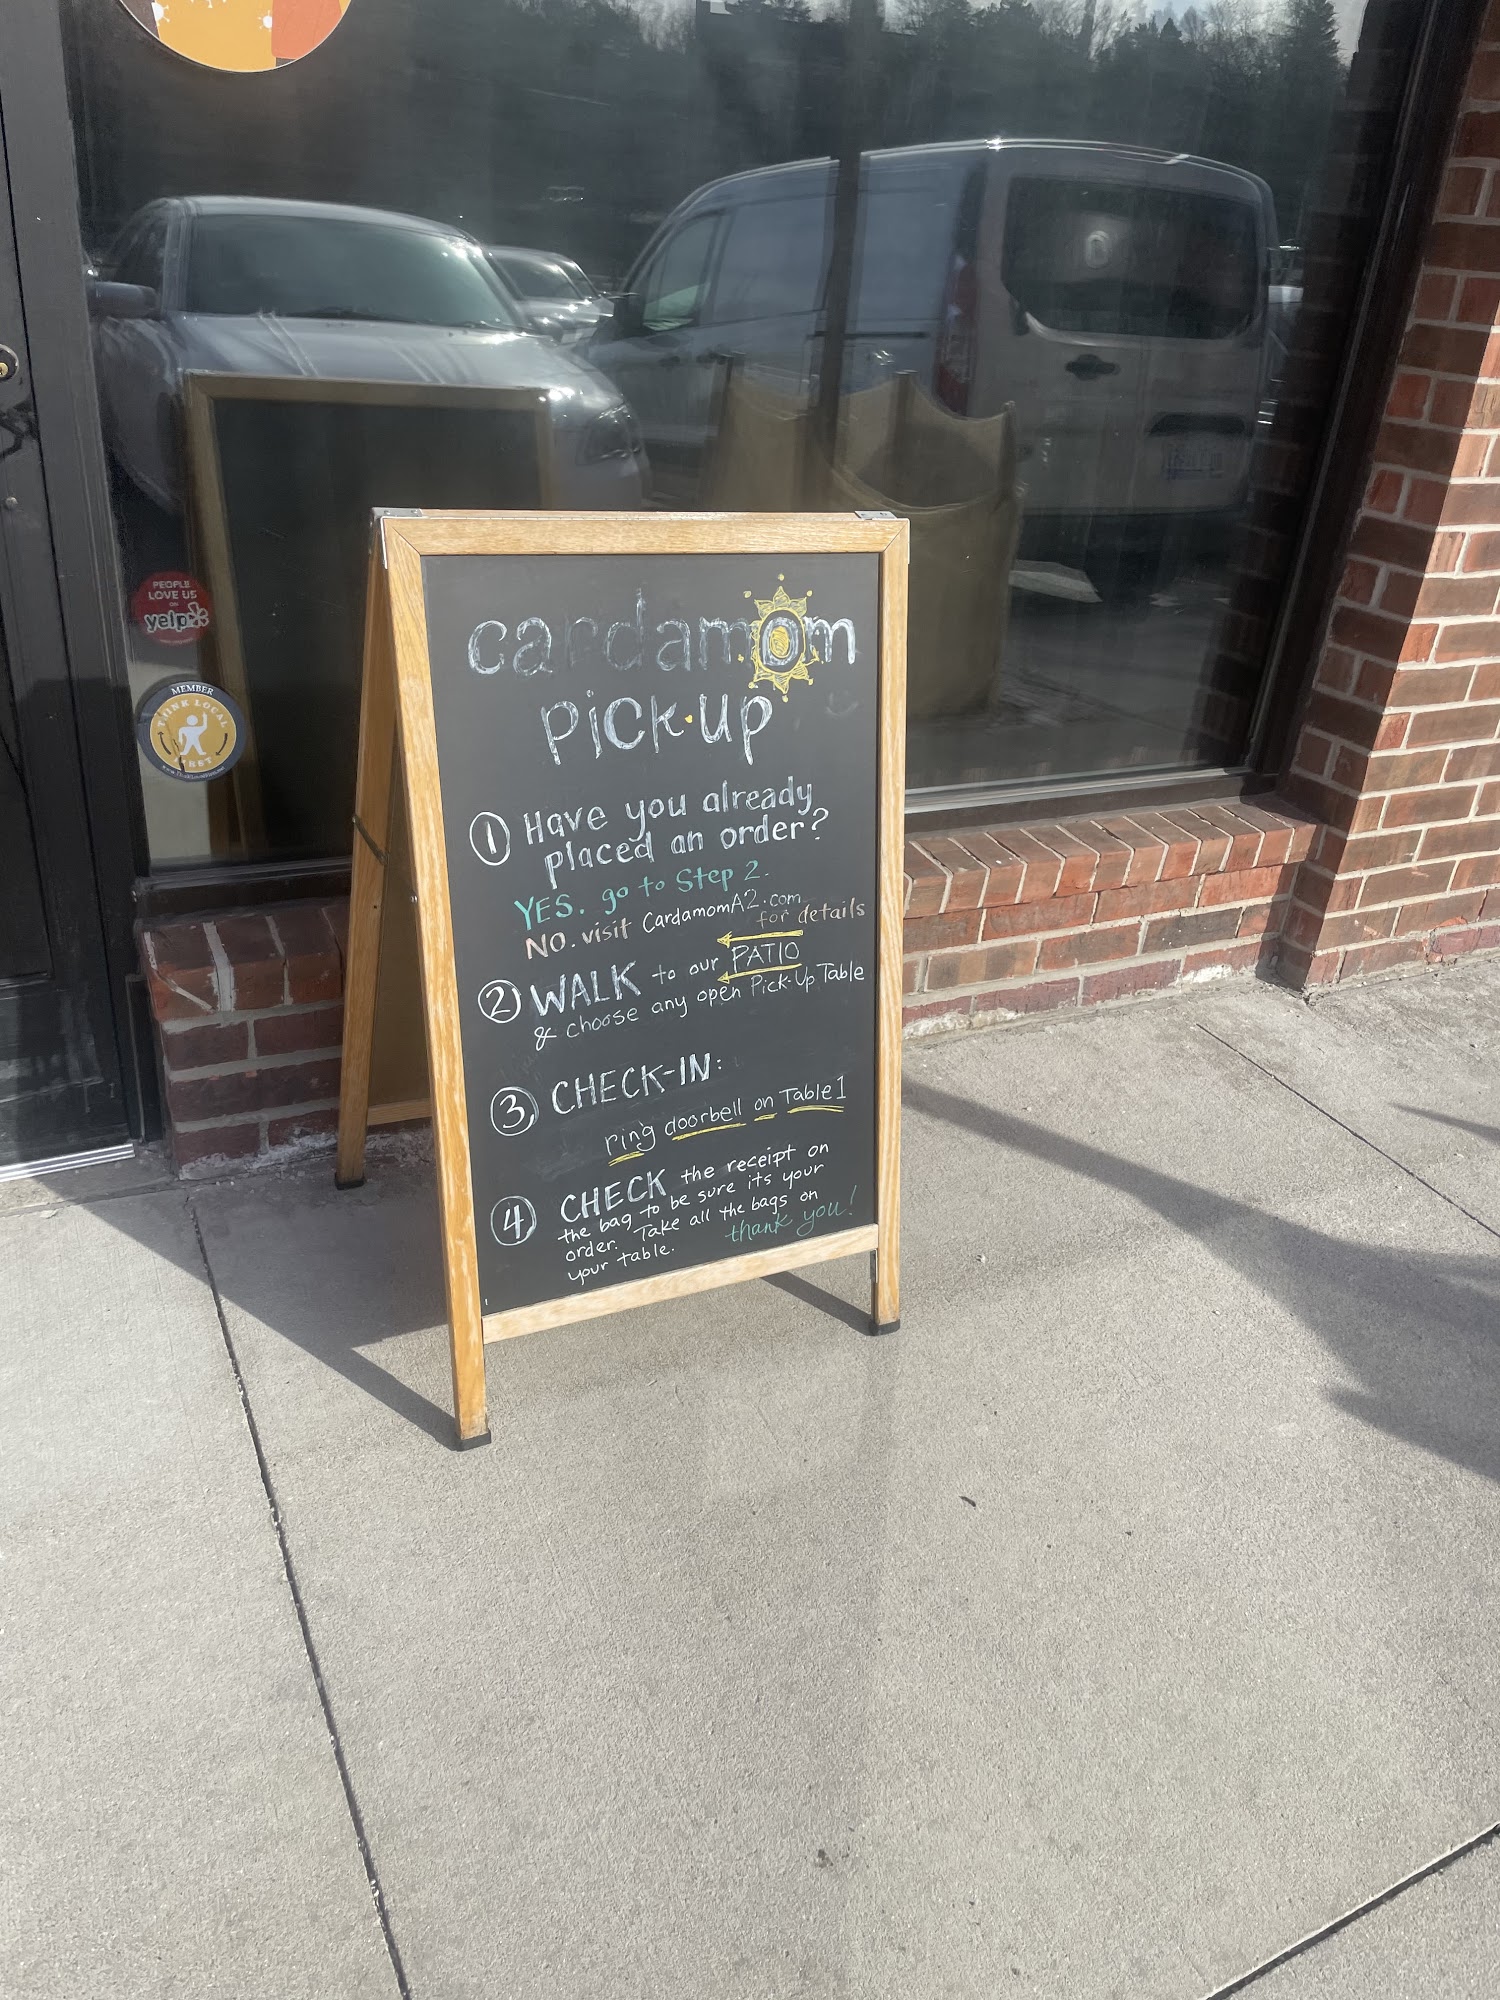 cardamom
pick·up
1 Have you already
placed an order?
YES. go to Step 2.
NO. visit CardamomA2.com
for details
2 WALK to our PATIO
& choose any open Pick-Up Table
3 CHECK-IN:
ring doorbell on Table 1
4 CHECK the receipt on
the bag to be sure its your
order. Take all the bags on
your table.
thank you!
PEOPLE
LOVE US
on
yelp
MEMBER
THINK LOCAL